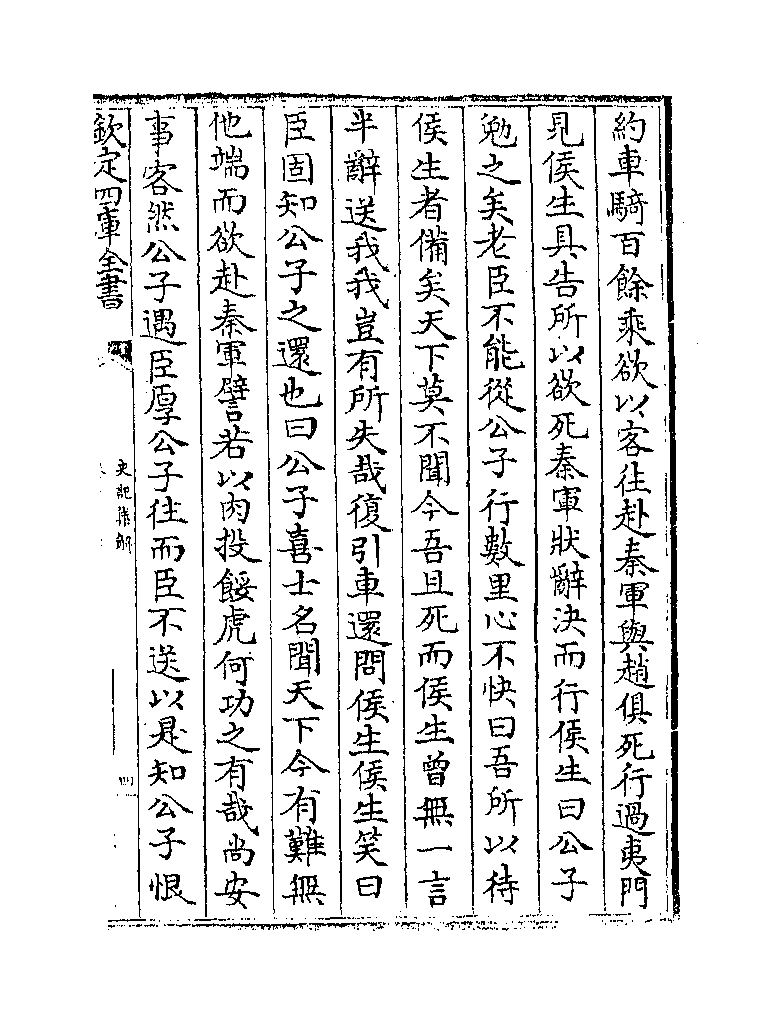 約車騎百餘乘欲以客往赴秦軍與趙俱死行過夷門
見侯生具告所以欲死秦軍狀辭決而行侯生曰公子
勉之矣老臣不能從公子行數里心不快曰吾所以待
侯生者備矣天下莫不聞今吾且死而侯生曾無一言
半辭送我我豈有所失哉復引車還問侯生侯生笑曰
臣固知公子之還也曰公子喜士名聞天下今有難無
他端而欲赴秦軍譬若以肉投餒虎何功之有哉尚安
事客然公子遇臣厚公子往而臣不送以是知公子恨
欽定四庫全書
史記集解
四